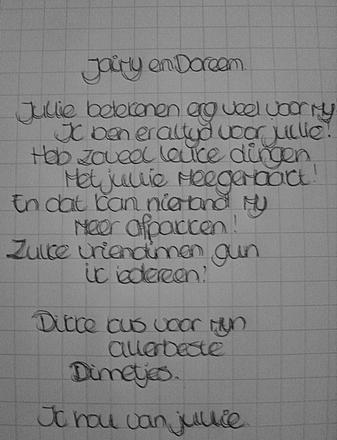 Jairy en Doreem
Jullie betekenen erg veel voor My
Ik ben er altyd voor jullie!
Heb zoveel leuke dingen
Met jullie Meegemaakt!
En dat kan niemand My
Meer afpakken!
Zulke vriendinnen gun
ik iedereen!
Dikke kus voor Myn
allerbeste
Dimetjes.
Ik hou van jullie